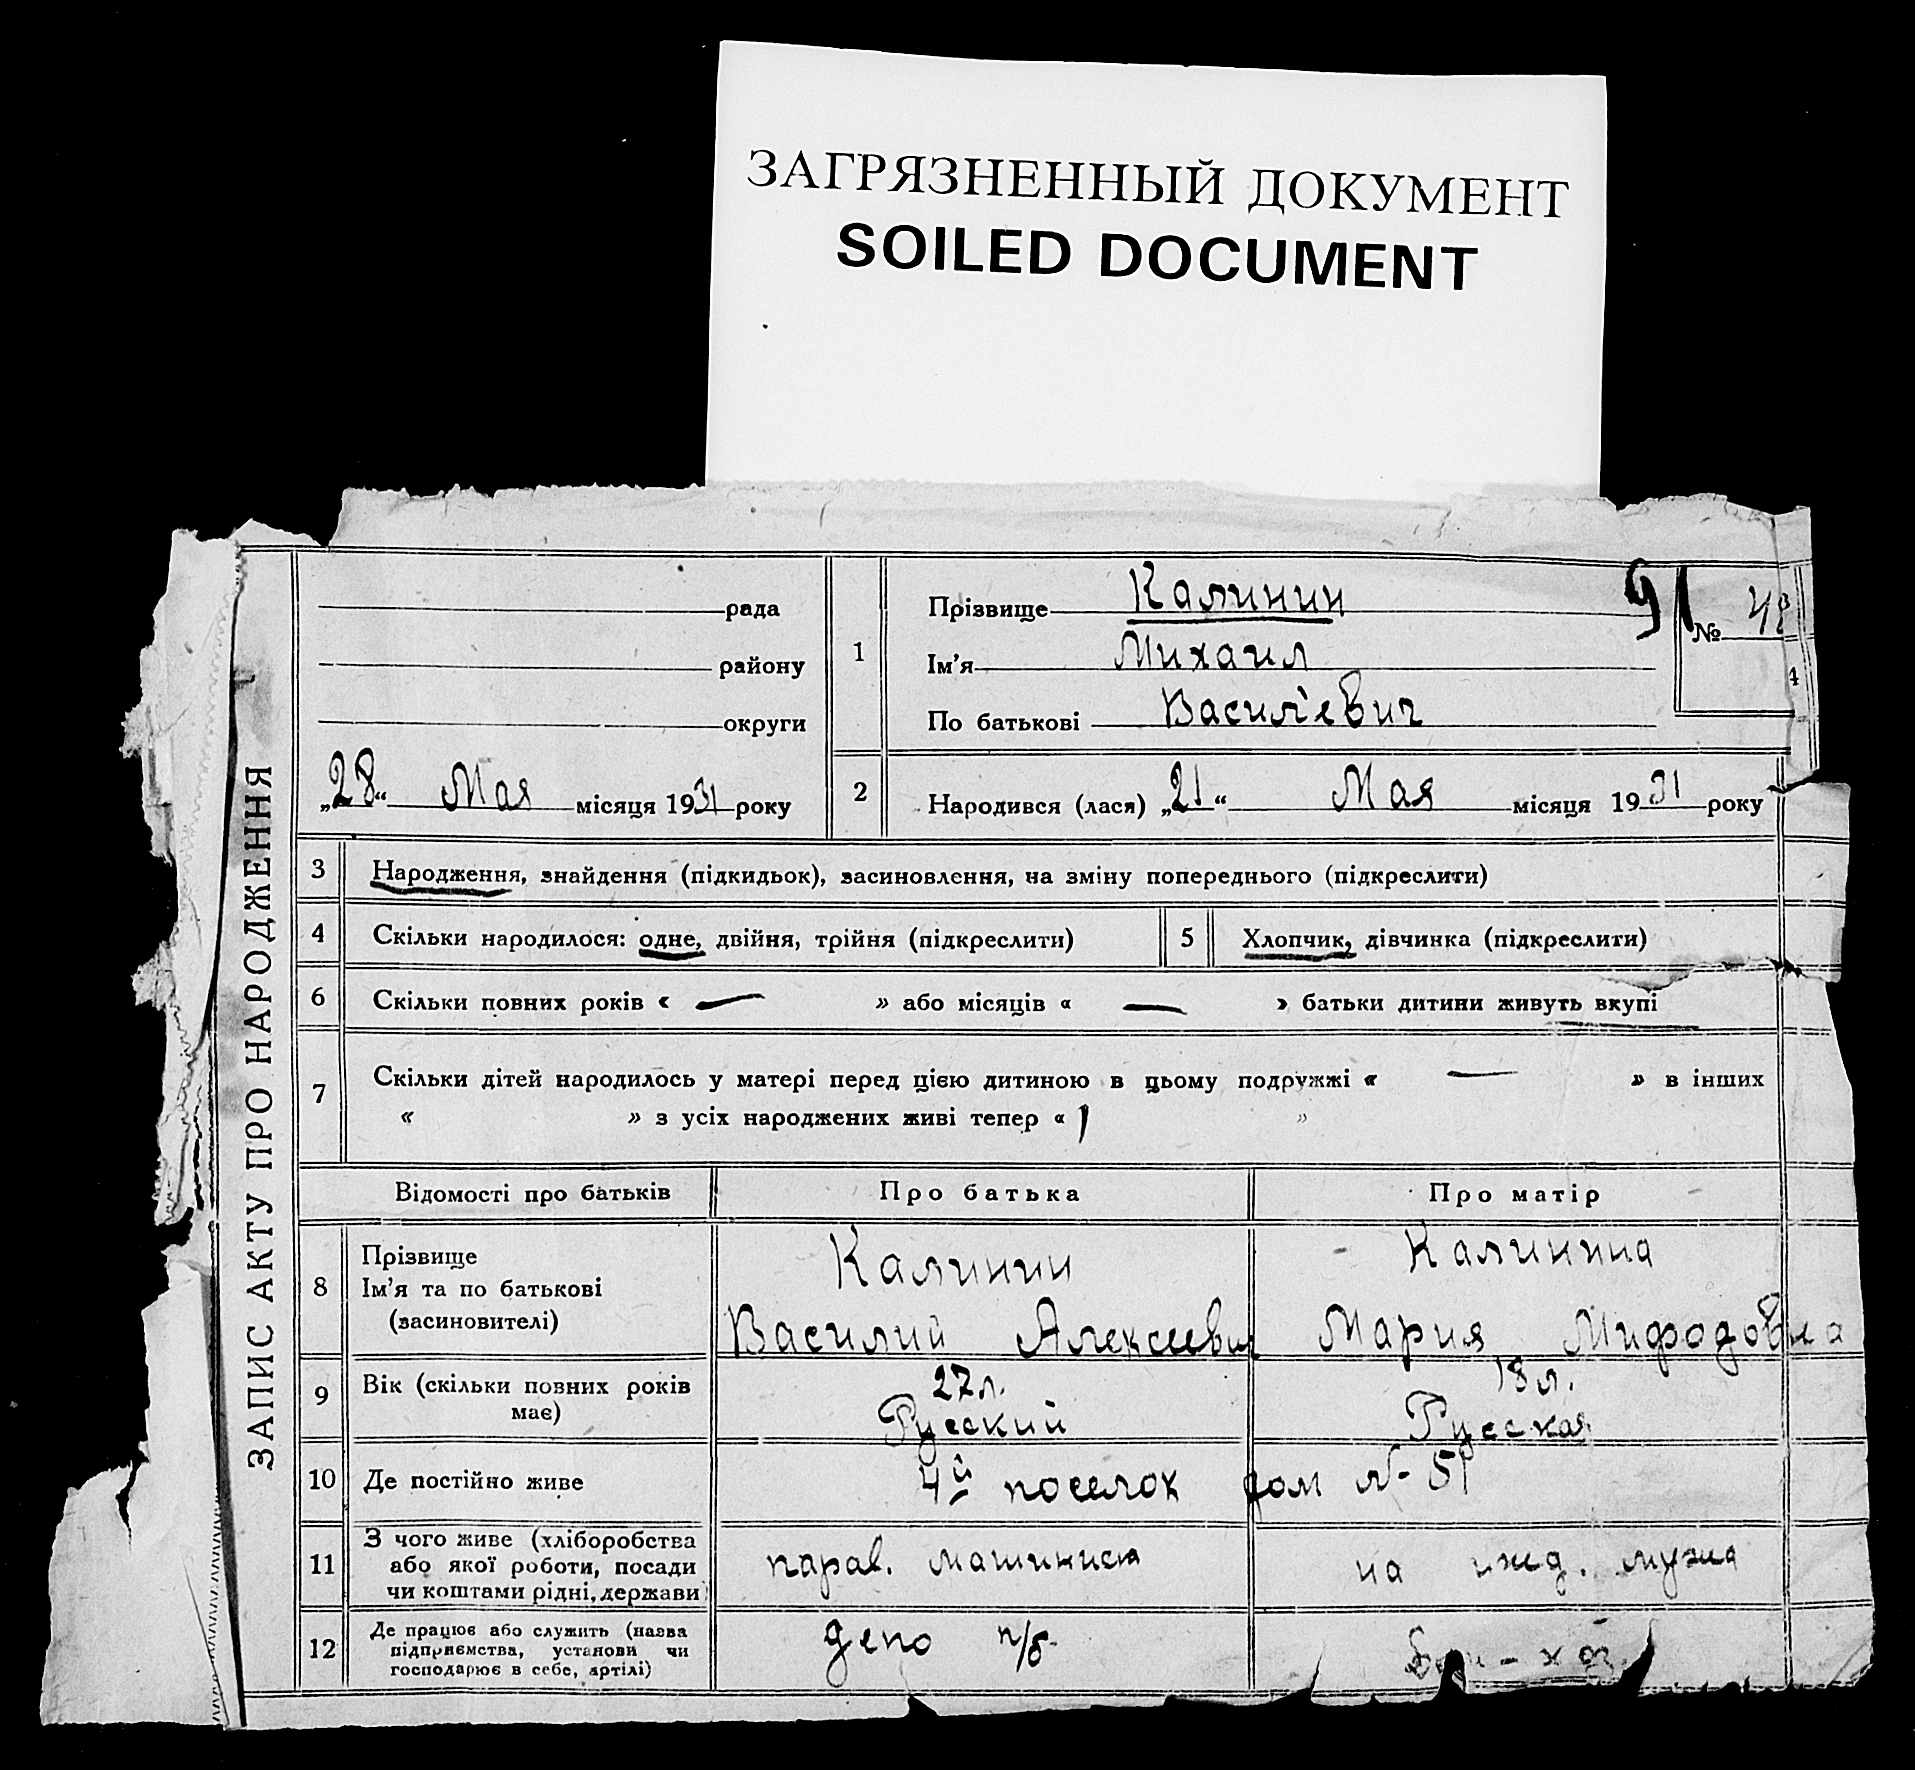 ЗАГРЯЗНЕННЫЙ ДОКУМЕНТ
SOILED DOCUMENT
ЗАПИС АКТУ ПРО НАРОДЖЕННЯ
рада
району
округи
„28“ Мая місяця 1931 року
1
Прізвище Калинин
Ім'я Михаил
По батькові Васил'евич
91
№
2 Народився (лася) „21“ Мая місяця 1931 року
3 Народження, знайдення (підкидьок), засиновлення, на зміну попереднього (підкреслити)
4 Скільки народилося: одне, двійня, трійня (підкреслити)
5 Хлопчик, дівчинка (підкреслити)
6 Скільки повних років « — » або місяців « — » батьки дитини живуть вкупі
7 Скільки дітей народилось у матері перед цією дитиною в цьому подружжі « — » в інших
« » з усіх народжених живі тепер « 1 »
Відомості про батьків
Про батька
Про матір
8 Прізвище
Ім'я та по батькові
(засиновителі)
Калинин
Василий Алексеевич
Калинина
Мария Мифодовна
9 Вік (скільки повних років
має)
27 л.
Русский
18 л.
Русская
10 Де постійно живе
4й поселок дом №
11 З чого живе (хліборобства
або якої роботи, посади
чи коштами рідні, держави)
парав. машинист
на ижд. мужа
12 Де працює або служить (назва
підприємства, установи чи
господарює в себе, артілі)
депо п/б